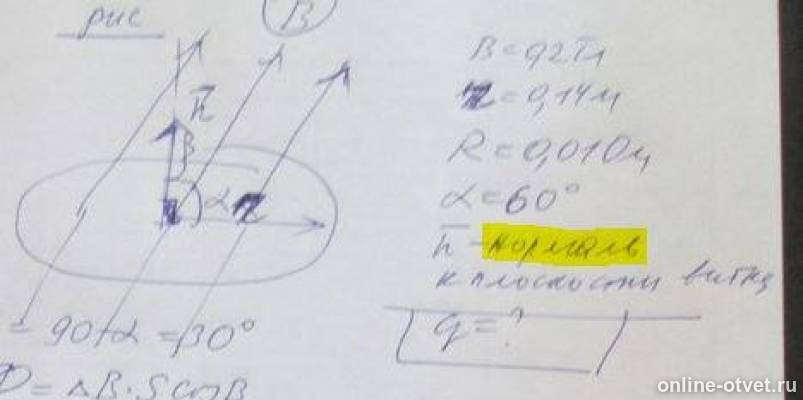 рис
B
B = 0,2 Тл
n
r = 0,14 м
β
R = 0,01 Ом
α r
α = 60°
n - нормаль
к плоскости витка
q = ?
= 90 - α = 30°
Ф = ΔB · S cos β
online-otvet.ru